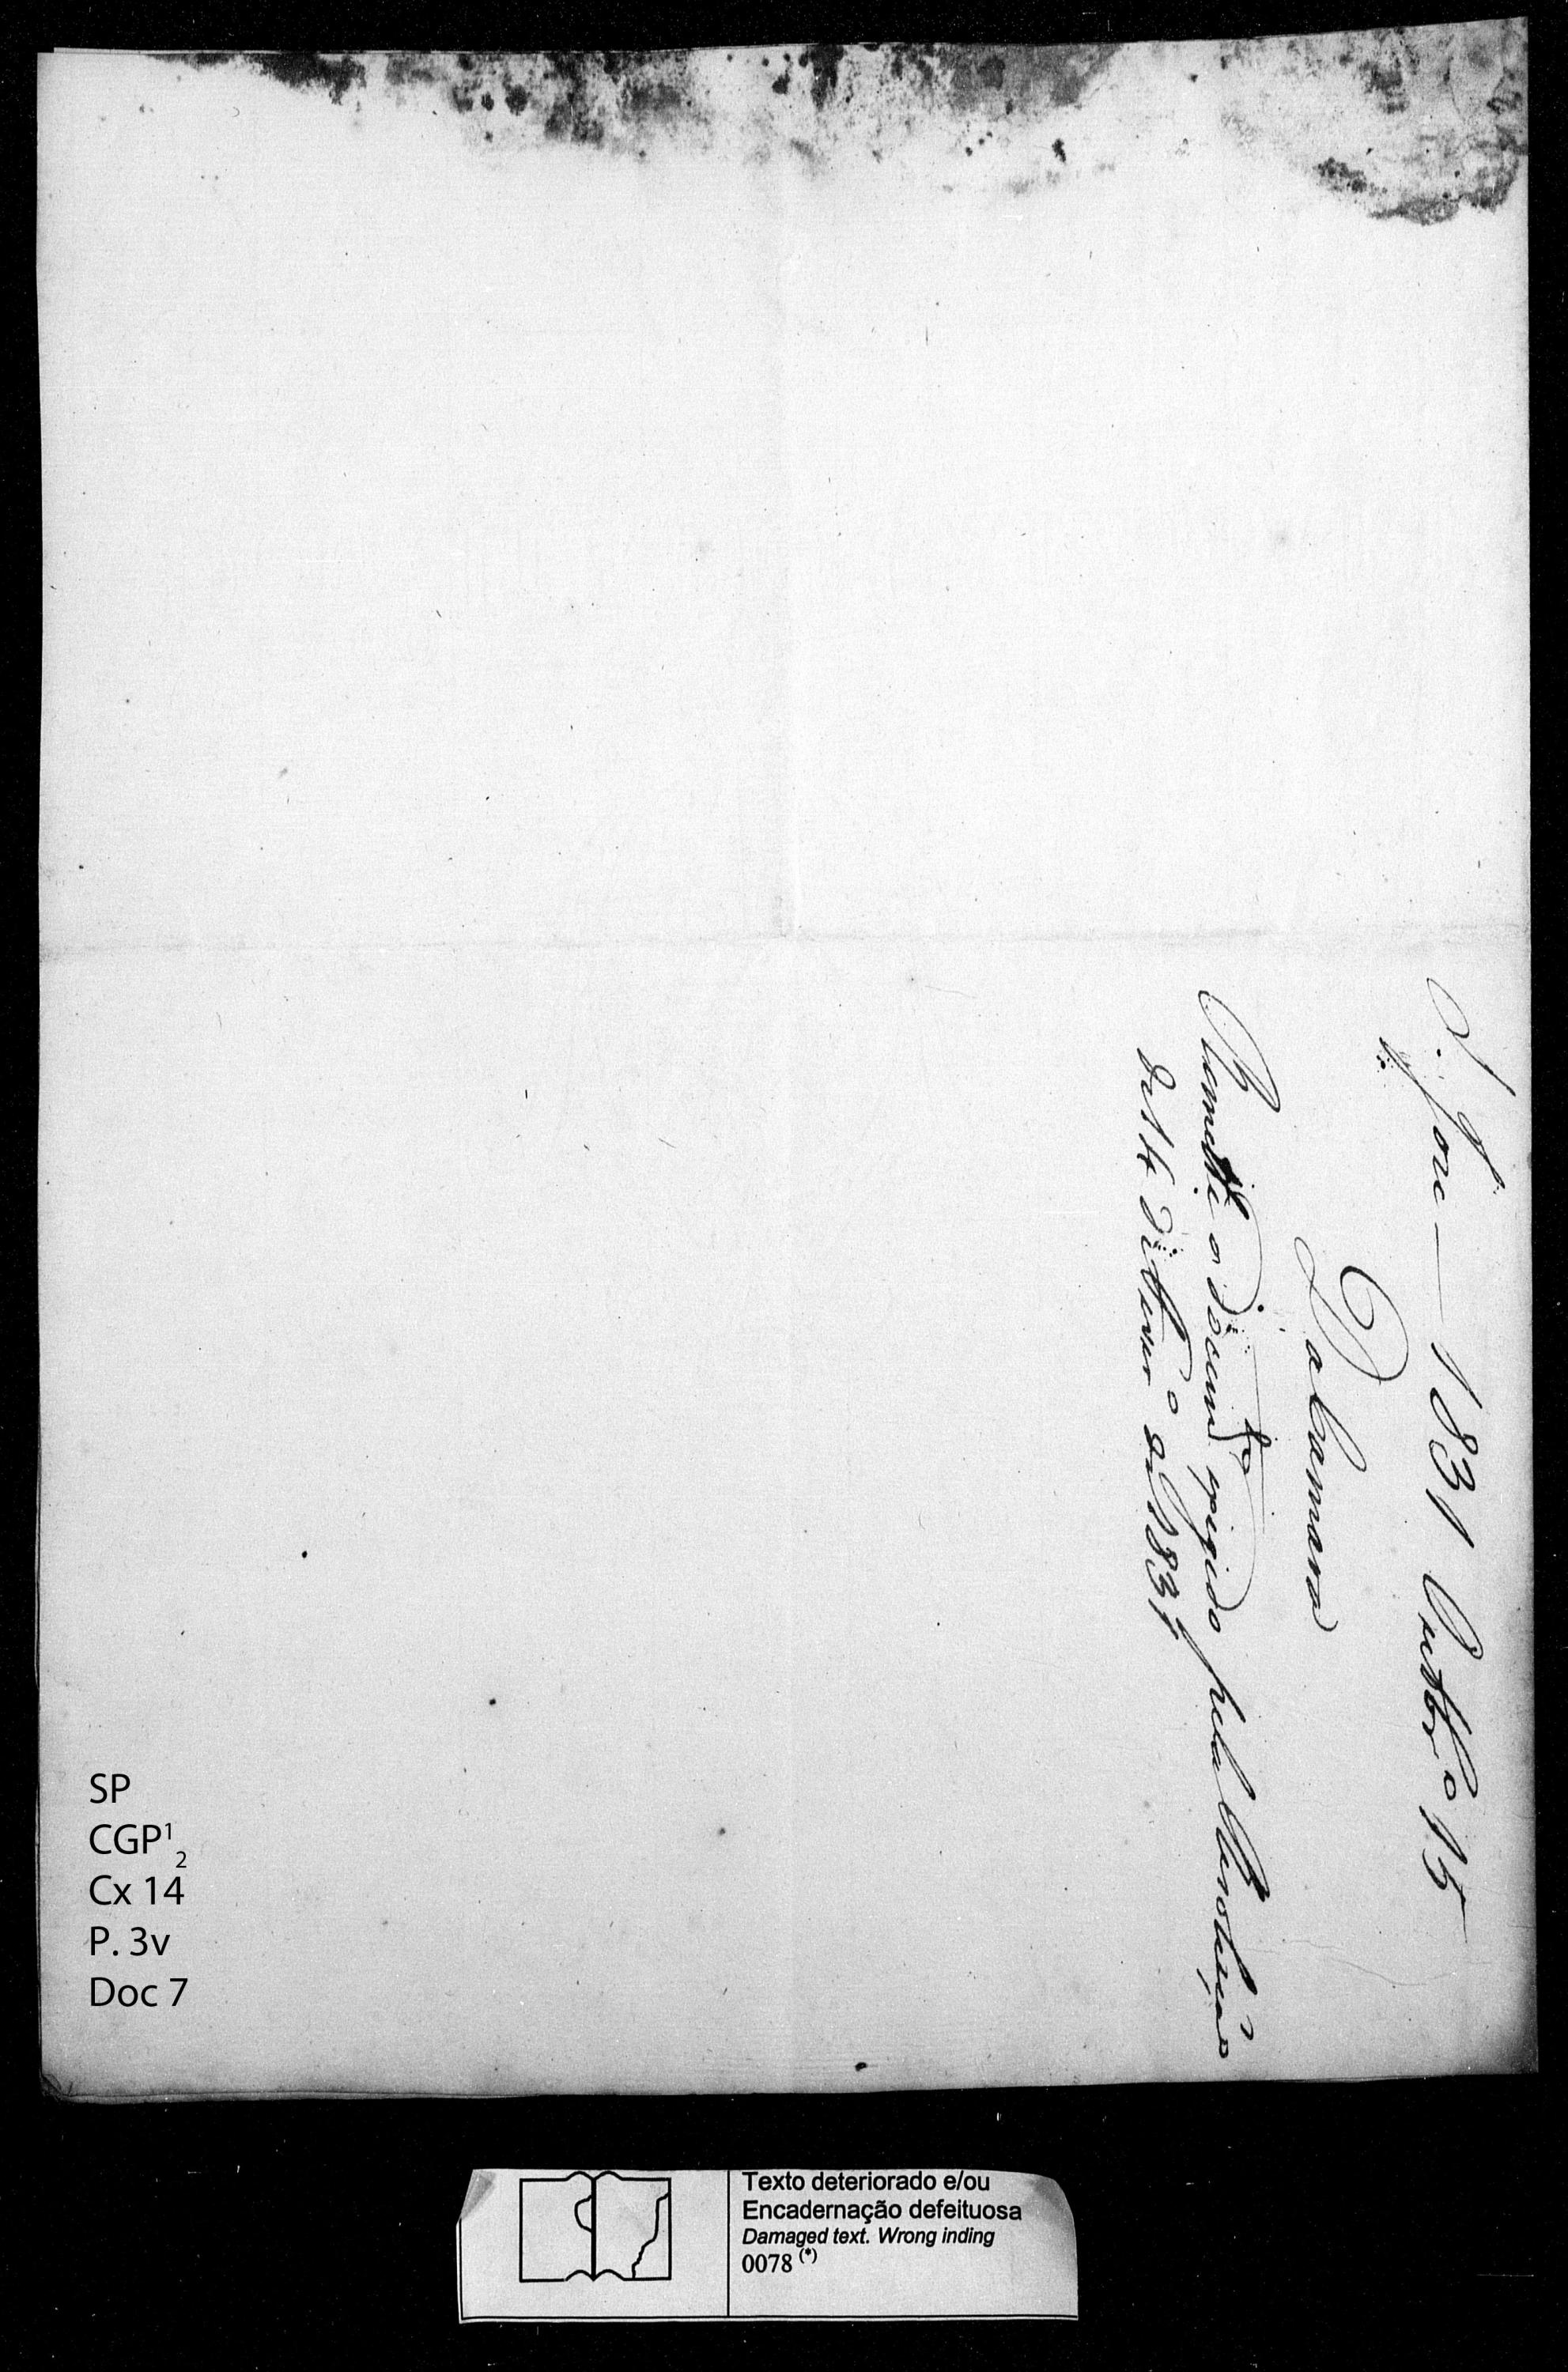 S. Jose — 1831 Outbr.º 15
Da Camara
Remette o docum.to exigido pela Resolução
de 14 de Fever.º de 1831
SP
CGP1 2
Cx 14
P. 3v
Doc 7
Texto deteriorado e/ou
Encadernação defeituosa
Damaged text. Wrong inding
0078 (*)